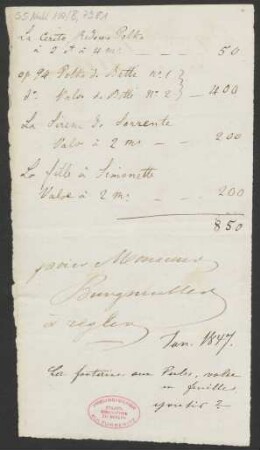 La Cerito Redowa Polka
à 2 et à 4 m. — — — 50
op. 94 Polka de Bette no. 1
do. Valse de Bette No. 2 — 400
La Sirène de Sorrente
Valse à 2 m. — — 200
La fille à Simonette
Valse à 2 m. 200
850
Monsieur
Burgmuller
à régler
Jan. 1847.
La fontaine aux Perles, valse
en feuilles